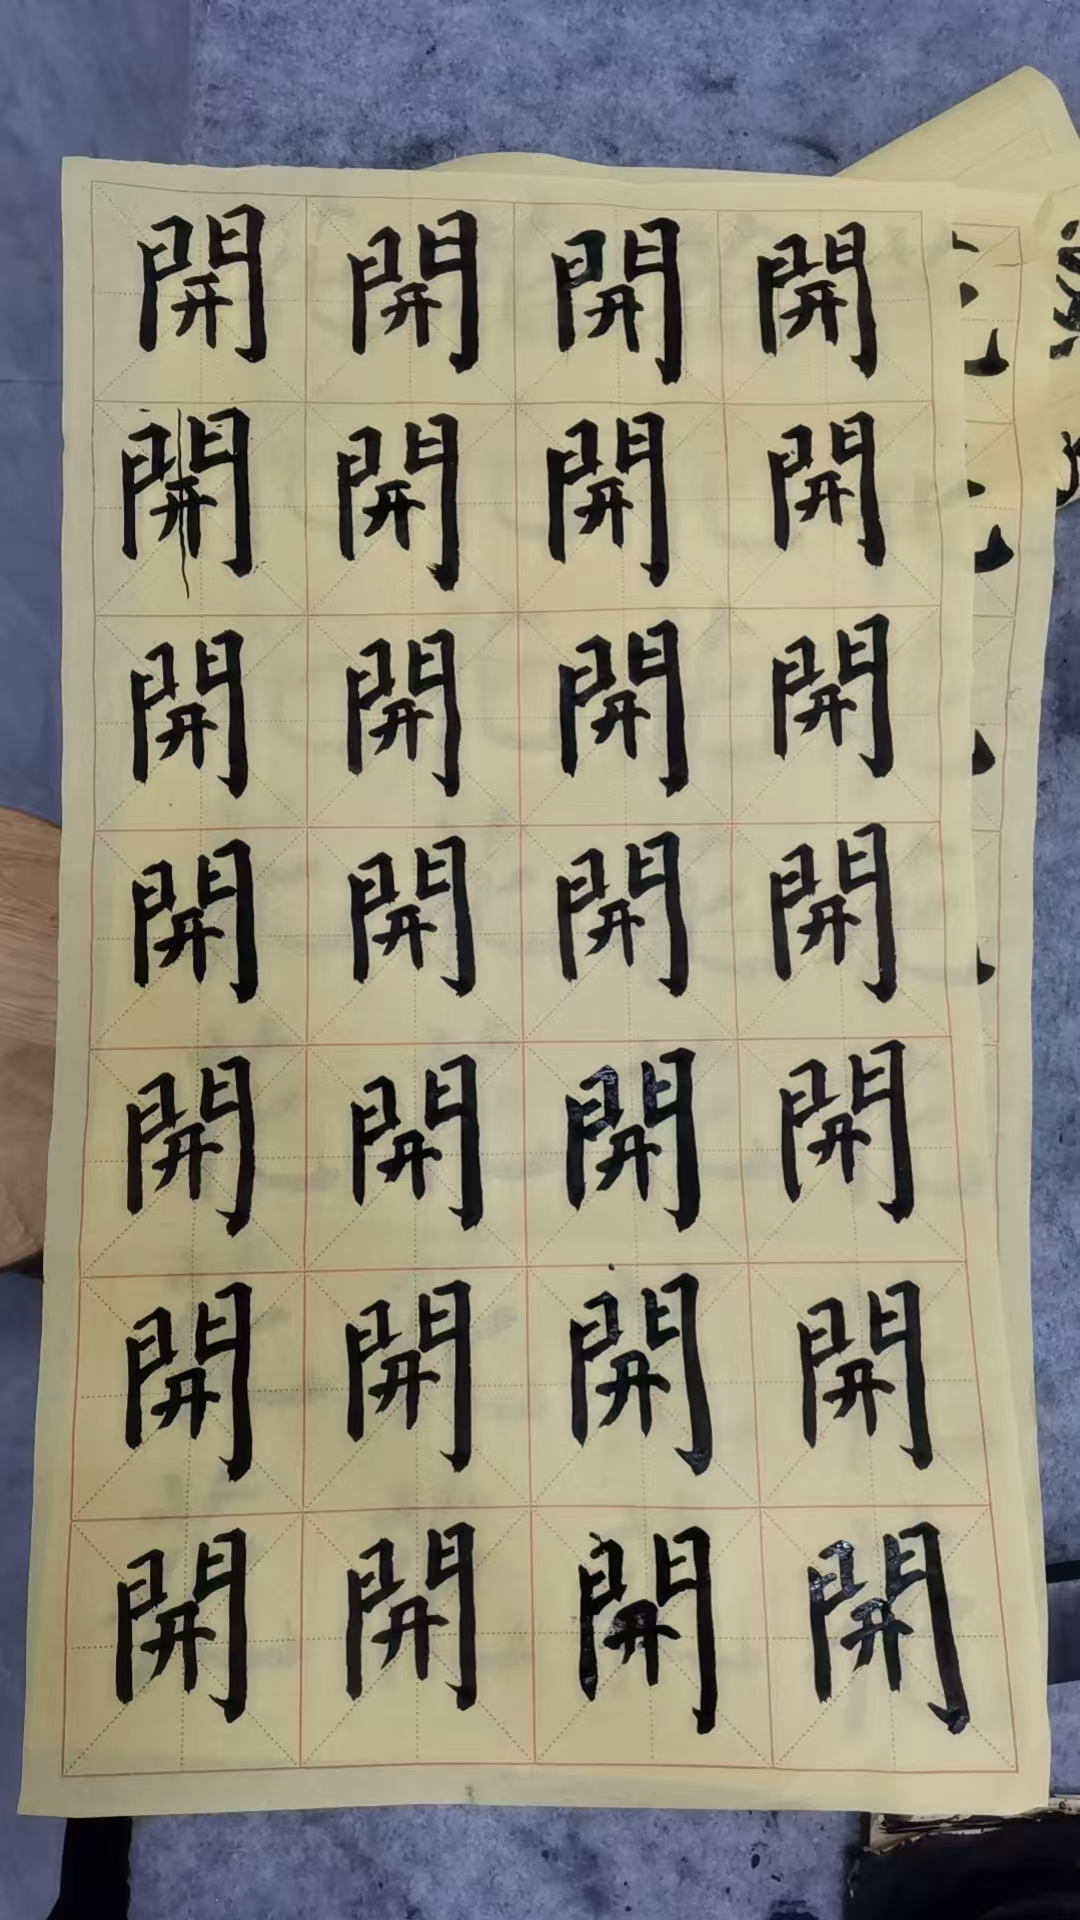 開開開開
開開開開
開開開開
開開開開
開開開開
開開開開
開開開開